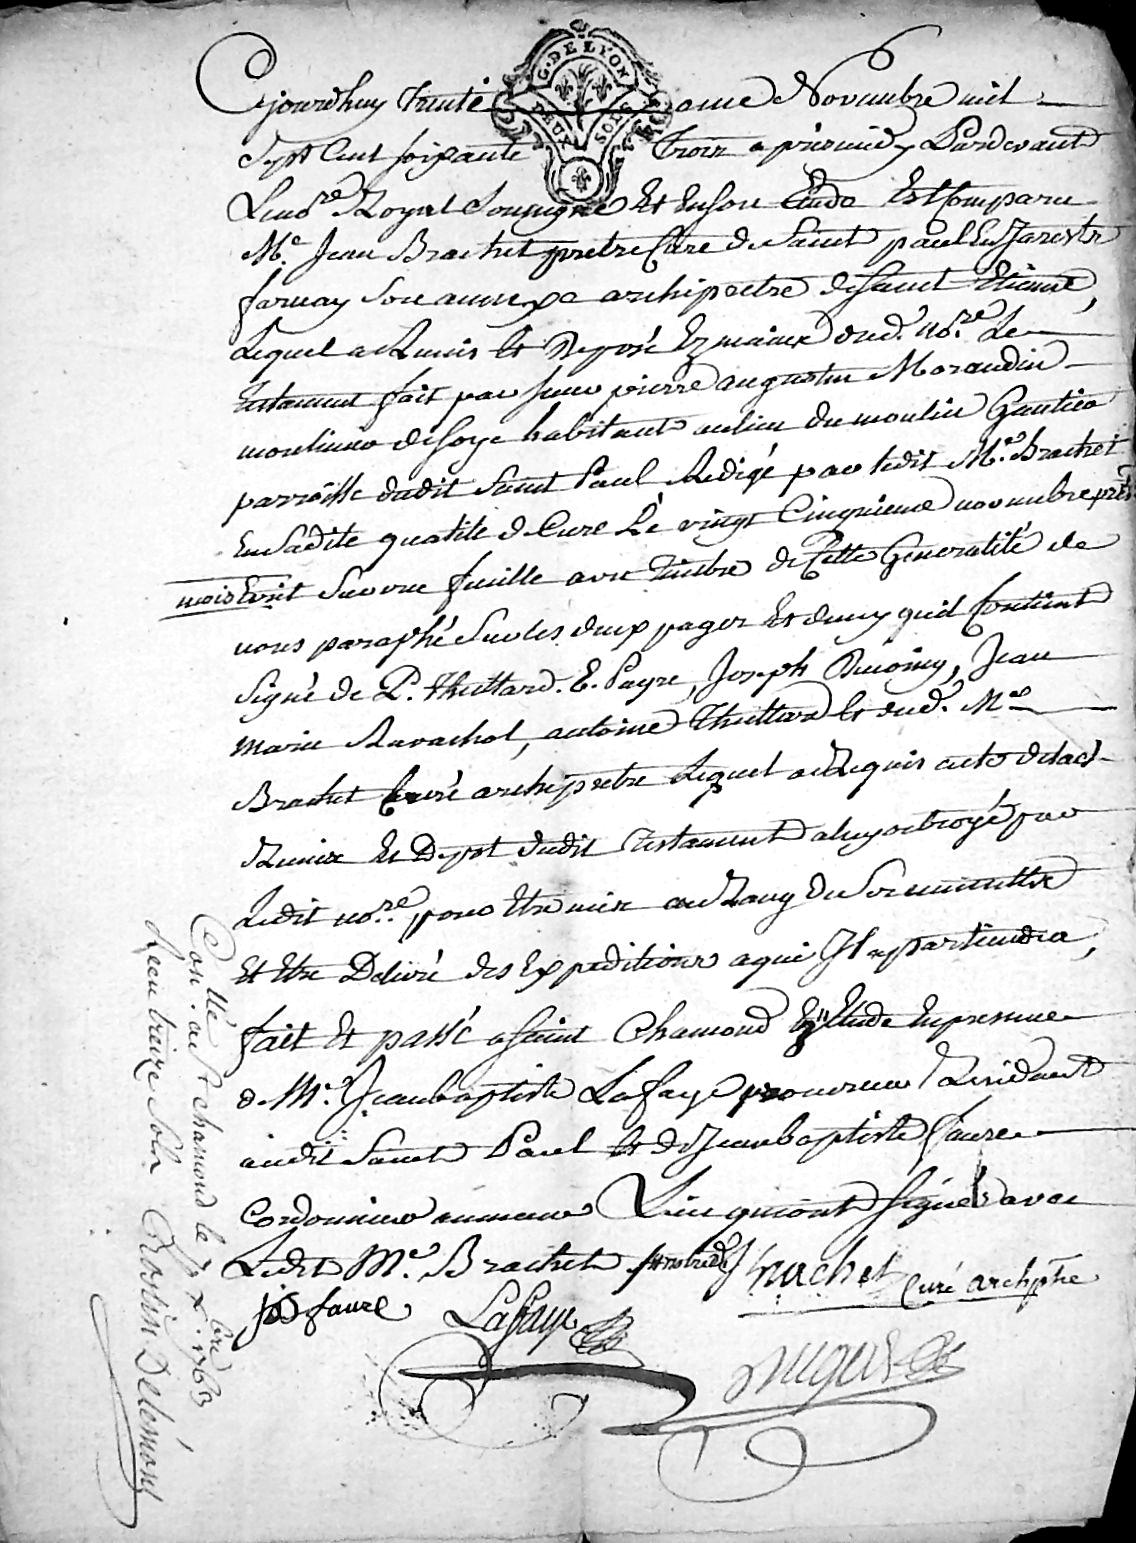 G. DE LYON
DEUX SOLS
Cejourdhuy trentieme Novembre mil
Sept Cent soixante Trois apres midy Pardevant
Le no.re Royal Soussigné Et En son Etude Est Comparu
M.e Jean Brachet pretre Curé de Saint paul En Jarest &
farnay son annexe archipretre de Saint Etienne,
Lequel a Remis et Deposé Ez mains dud. no.re Le
testament fait par feu pierre augustin Morandin
moulinier de soye habitant au lieu du moulin Gautier
parroisse dudit Saint Paul Redigé par ledit M.e Brachet
En Sadite qualité de Curé Le vingt Cinquieme novembre prést
mois Ecrit Sur une feuille avec timbre de Cette Generalité de
nous paraphé Sur les deux pages Et demy quil Contient
Signé de P. thiollard. E. Payre, Joseph, Jean
marie Ravachol, antoine Thiollard et dud. M.e
Brachet Curé archipretre Lequel a Requis acte de lad.
Remise Et Depot dudit Testament a luy octroyé par
Ledit no.re pour Etre mis au Rang de Ses minuttes
Et Etre Delivré des Expeditions a qui Il apartiendra,
fait Et passé a Saint Chamond En Etude En presence
de M.e Jean baptiste Lafaye procureur Residant
audit Saint Paul et de Jean baptiste faure
Cordonnier Lieu qui ont Signé avec
Ledit M.e Brachet
Brachet Curé archiptre
jb faure Lafaye
Con.llé au St chamond le 7 xbre 1763
Reçu treize sols